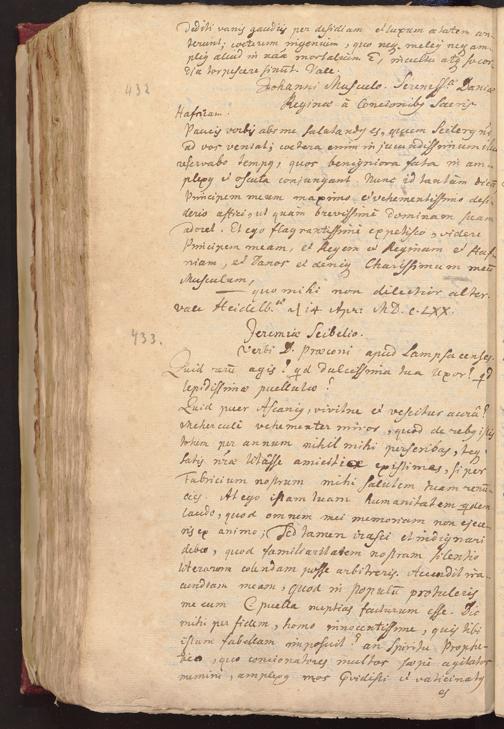 dediti vanis gaudiis per desidiam et luxum ætatem con-
terunt, cœterum ingenium, quo neq3 meliq neq am-
pliq aliud in nãa mortalium ẽ, incultu atq3 socor-
dia torpescere sinunt. Vale.
432
Johanni Musculo. Serenissæ Daniæ
Reginæ à Concionibq Sacris
Hafniam.
Paucis verbis abs me salutandq es,
ad vos veniat; cœtera enim in jucundissimum illud
reservabo tempq, quos benigniora fata in am-
plexq et oscula conjungant. Nunc id tantum dicam
Principem meam maximo et vehementissimo desi-
derio affici, ut quam brevissime dominam suam
adoret. Et ego flagrantissime expetisco, videre
Principem meam, et Regem et Reginam et Haf-
niam, et Danos et deniq Charissimum meũ
Musculum,
quo mihi non dilectior alter.
Vale Heidelb. 14 Apr. MDCLXX.
433.
Jeremiæ Scibelio.
Verbi D. Præconi apud Lampsacenses.
Quid rerũ agis? qd dulcissima tua Uxor? qd
lepidissimæ puellulæ?
Quid puer Ascaniq, vivitne et vescitur aurâ?
Mehercule vehementer miror, quod de rebq istis
totum per annum nihil mihi perscribas, teq
satis nr̃æ amicitiæ existimes, si per
Fabricium nostrum mihi salutem tuam renun-
cies. At ego istam tuam humanitatem qdem
laudo, quod omnem mei memoriam non ejece-
ris ex animo; Sed tamen irasci et indignari
debeo, quod familiaritatem nostram silentio
literarum colendam posse arbitreris. Accendit ira-
cundiam meam, quod in populũ protuleris
me cum puella nuptias facturum esse. Dic
mihi per fidem, homo innocentissime, quis tibi
istam fabellam imposuit? an Spiritu Prophe-
tico, quo concionatores multos sæpe agitatos
memini, amplexq mox vidisti et vaticinatq
es